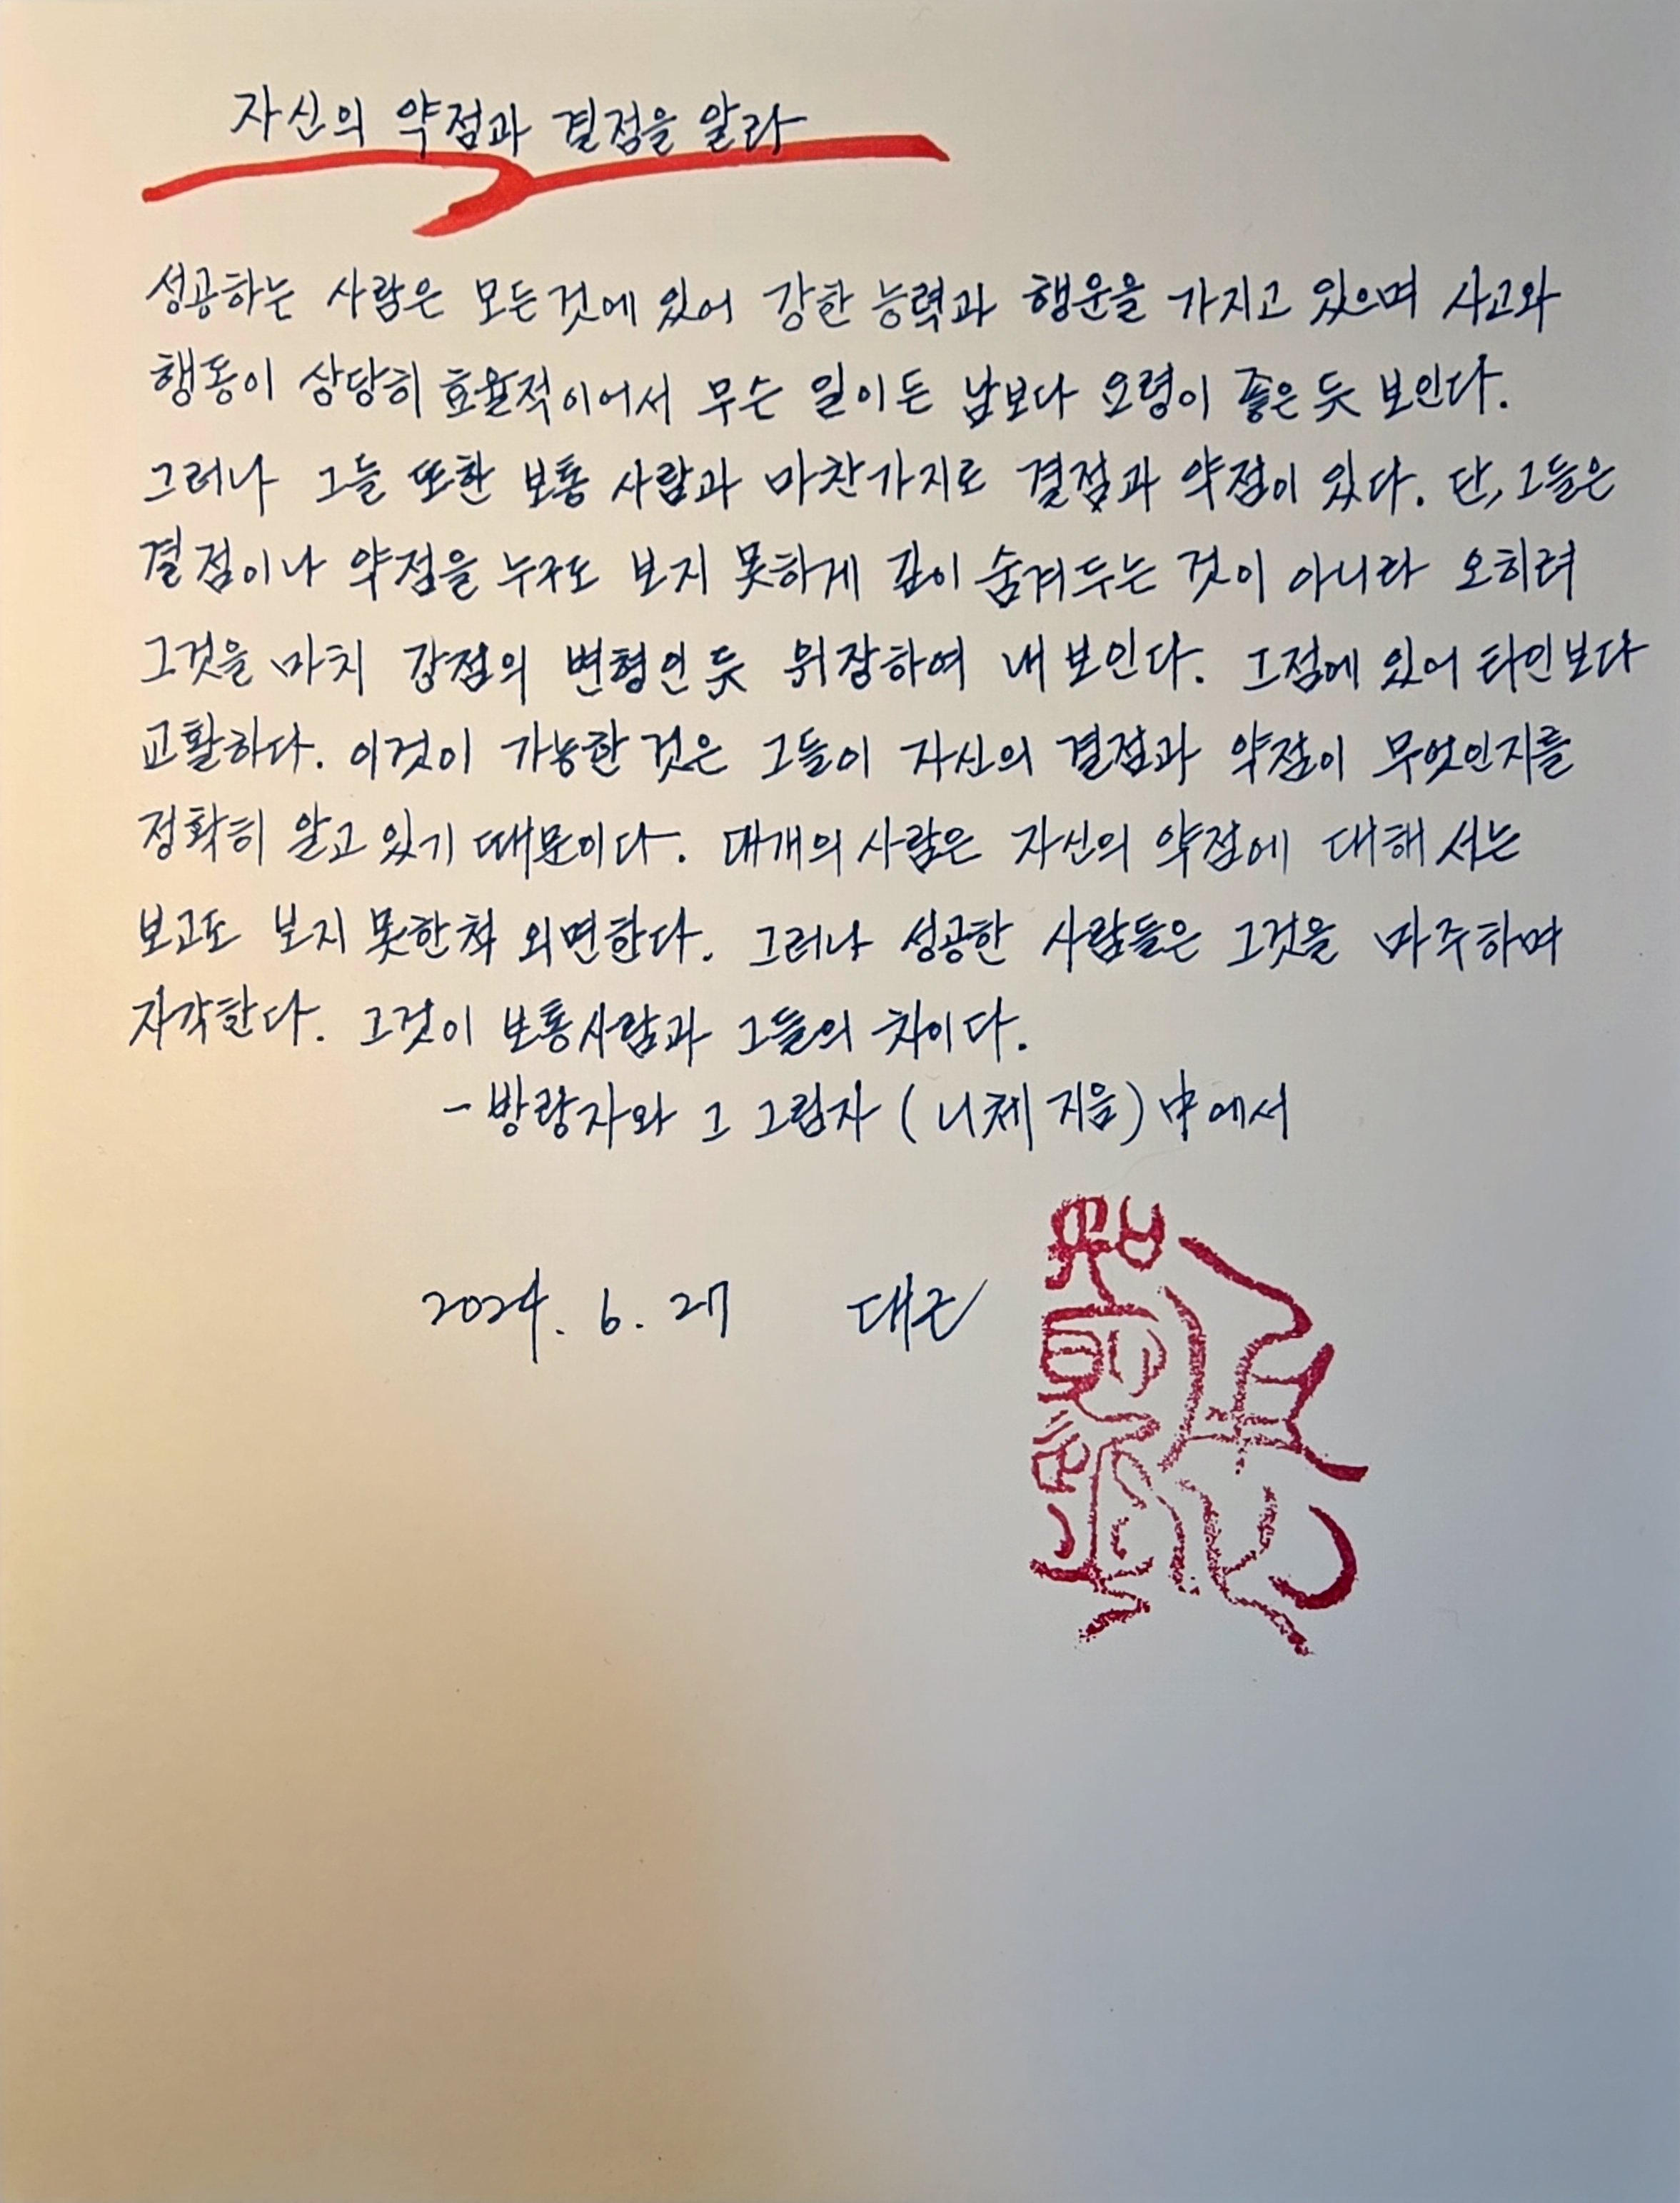 자신의 약점과 결점을 알라
성공하는 사람은 모든것에 있어 강한 능력과 행운을 가지고 있으며 사고와
행동이 상당히 효율적이어서 무슨 일이든 남보다 요령이 좋은 듯 보인다.
그러나 그들 또한 보통 사람과 마찬가지로 결점과 약점이 있다. 단, 그들은
결점이나 약점을 누구도 보지 못하게 깊이 숨겨두는 것이 아니라 오히려
그것을 마치 강점의 변형인 듯 위장하여 내 보인다. 그점에 있어 타인보다
교활하다. 이것이 가능한 것은 그들이 자신의 결점과 약점이 무엇인지를
정확히 알고 있기 때문이다. 대개의 사람은 자신의 약점에 대해서는
보고도 보지 못한척 외면한다. 그러나 성공한 사람들은 그것을 마주하며
자각한다. 그것이 보통사람과 그들의 차이다.
- 방랑자와 그 그림자 (니체 지음) 中에서
2024. 6. 27 대근